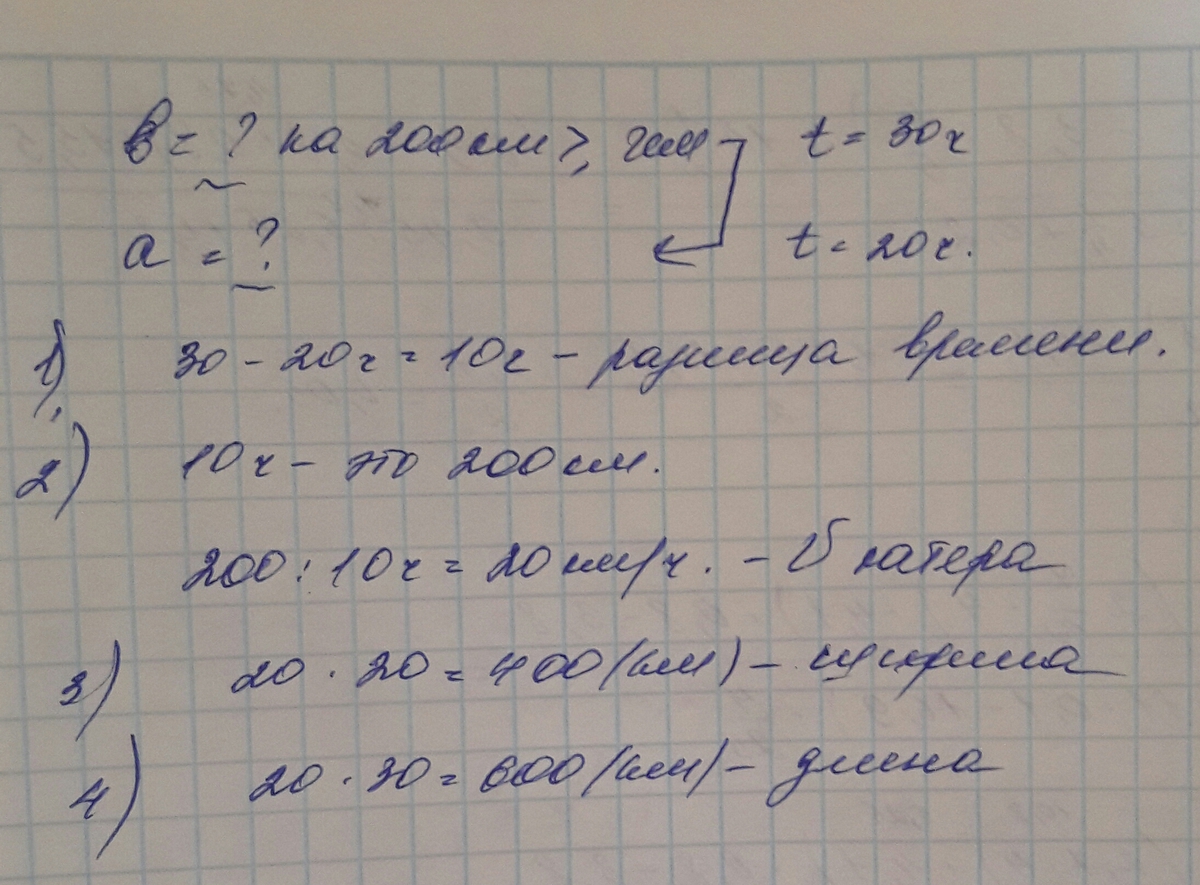 в = ? на 200 км >, чем t = 30 ч
а = ? t = 20 ч.
1) 30 - 20 ч = 10 ч - разница времени.
2) 10 ч - это 200 км.
200 : 10 ч = 20 км/ч. - V катера
3) 20 · 20 = 400 (км) - ширина
4) 20 · 30 = 600 (км) - длина